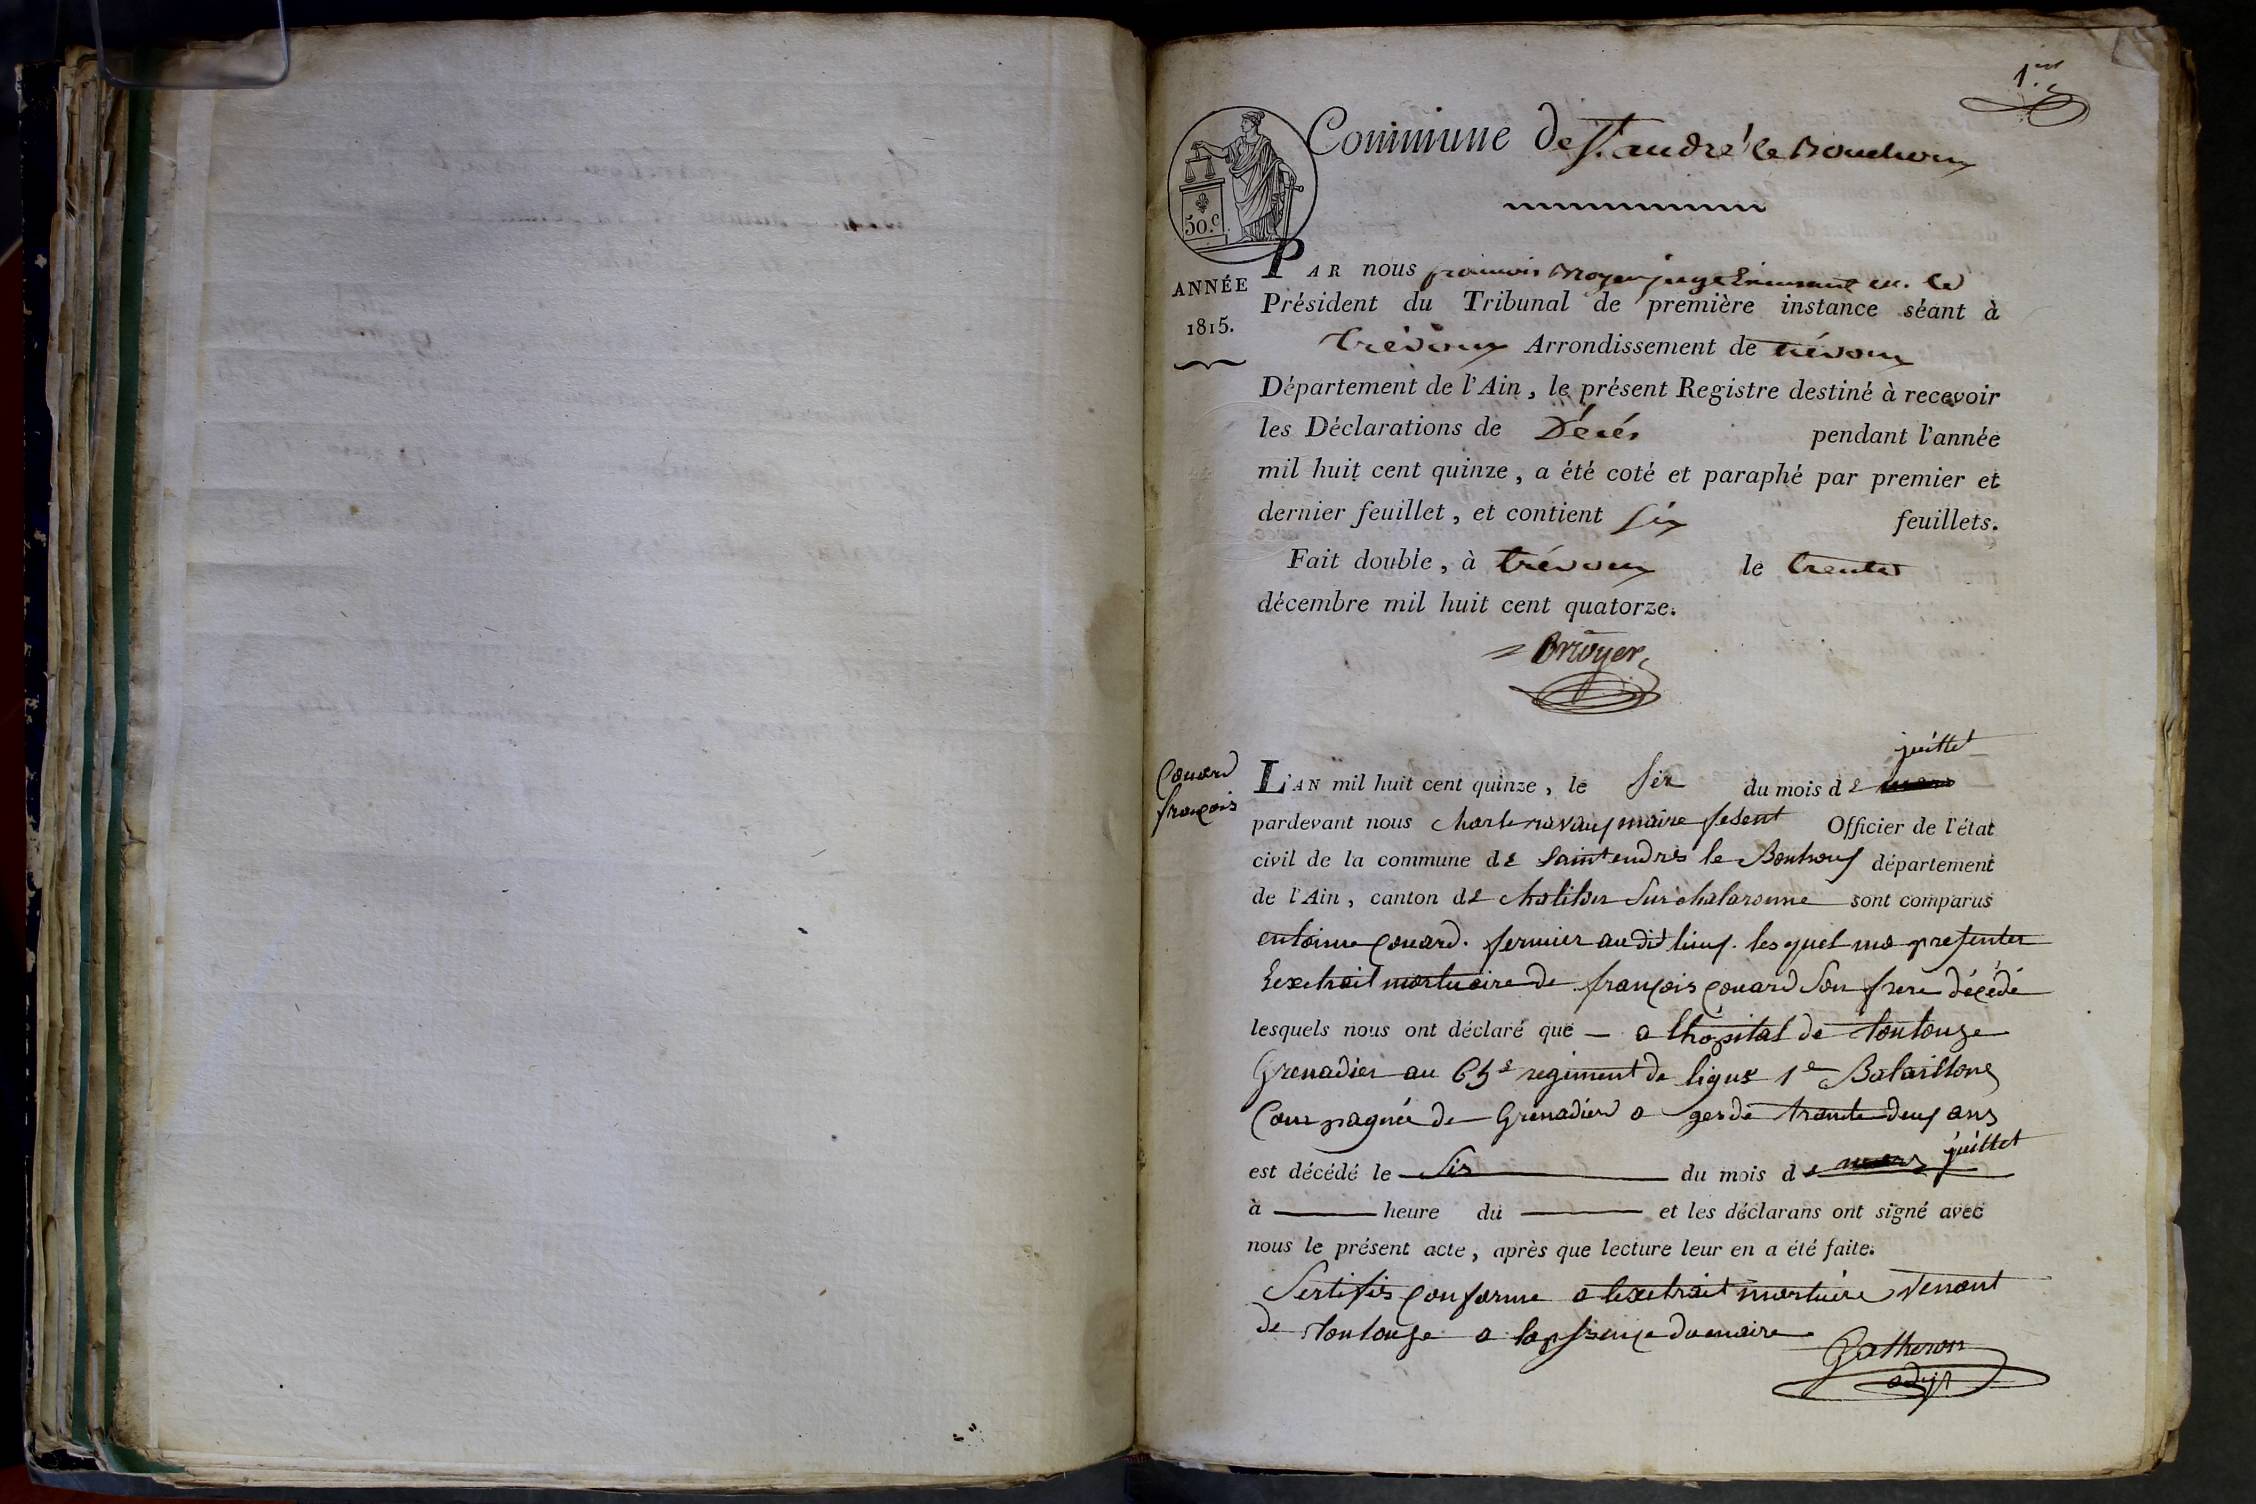 1.er
Commune de St. andré le Bouchoux
50.c
ANNÉE
1815.
PAR nous françois Broyer juge
Président du Tribunal de première instance séant à
trévoux Arrondissement de trévoux
Département de l'Ain, le présent Registre destiné à recevoir
les Déclarations de Décés pendant l'année
mil huit cent quinze, a été coté et paraphé par premier et
dernier feuillet, et contient six feuillets.
Fait double, à trévoux le trente
décembre mil huit cent quatorze.
Broyer
Couard
françois
juillet
L'AN mil huit cent quinze, le six du mois de mars
pardevant nous maire Officier de l'état
civil de la commune de Saint endres le Bouhouf département
de l'Ain, canton de chalaronne sont comparus
entoinne Couard. fermier au dit lieuf. lesquel ma presenter
Lextrait mortuaire de françois Couard Son frere décédé
lesquels nous ont déclaré que — a lhôpital de toulouze
Grenadier au 65e regiment de ligne 1e Bataillone
Compagnie de Grenadier a gesde trante deuf ans
est décédé le Six du mois de mars juillet
à heure du et les déclarans ont signé avec
nous le présent acte, après que lecture leur en a été faite.
Sertifies conforme a lextrait mortuire venant
de toulouze a du maire
Gatheron
adjt